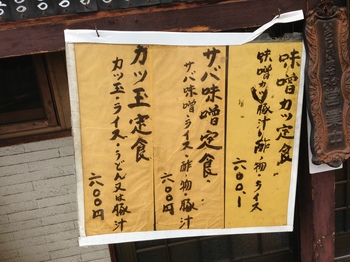 味噌カツ定食
味噌カツ・豚汁・酢・物・ライス
六〇〇.ー
サバ味噌定食.
サバ味噌・ライス・酢・物・豚汁
六〇〇円
カツ玉定食
カツ玉・ライス・うどん又は豚汁
六〇〇円